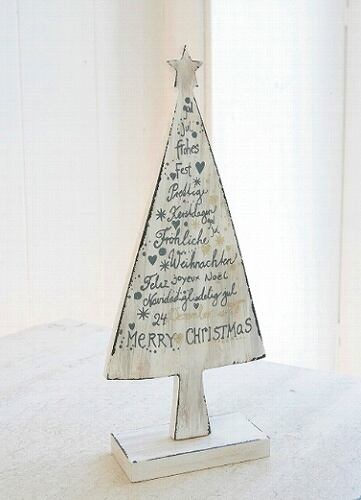 god
Jul
frohes
Fest
Prettige
Kerstdagen
Fröhliche
Weihnachten
Feliz Joyeux Noël
Navidad glædelig jul
24 Dezember
MERRY CHRISTMAS